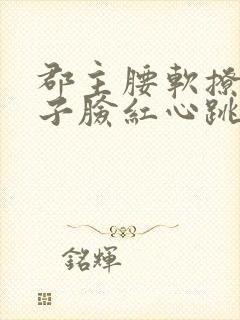 郡主腰軟撩
子臉紅心跳
銘輝